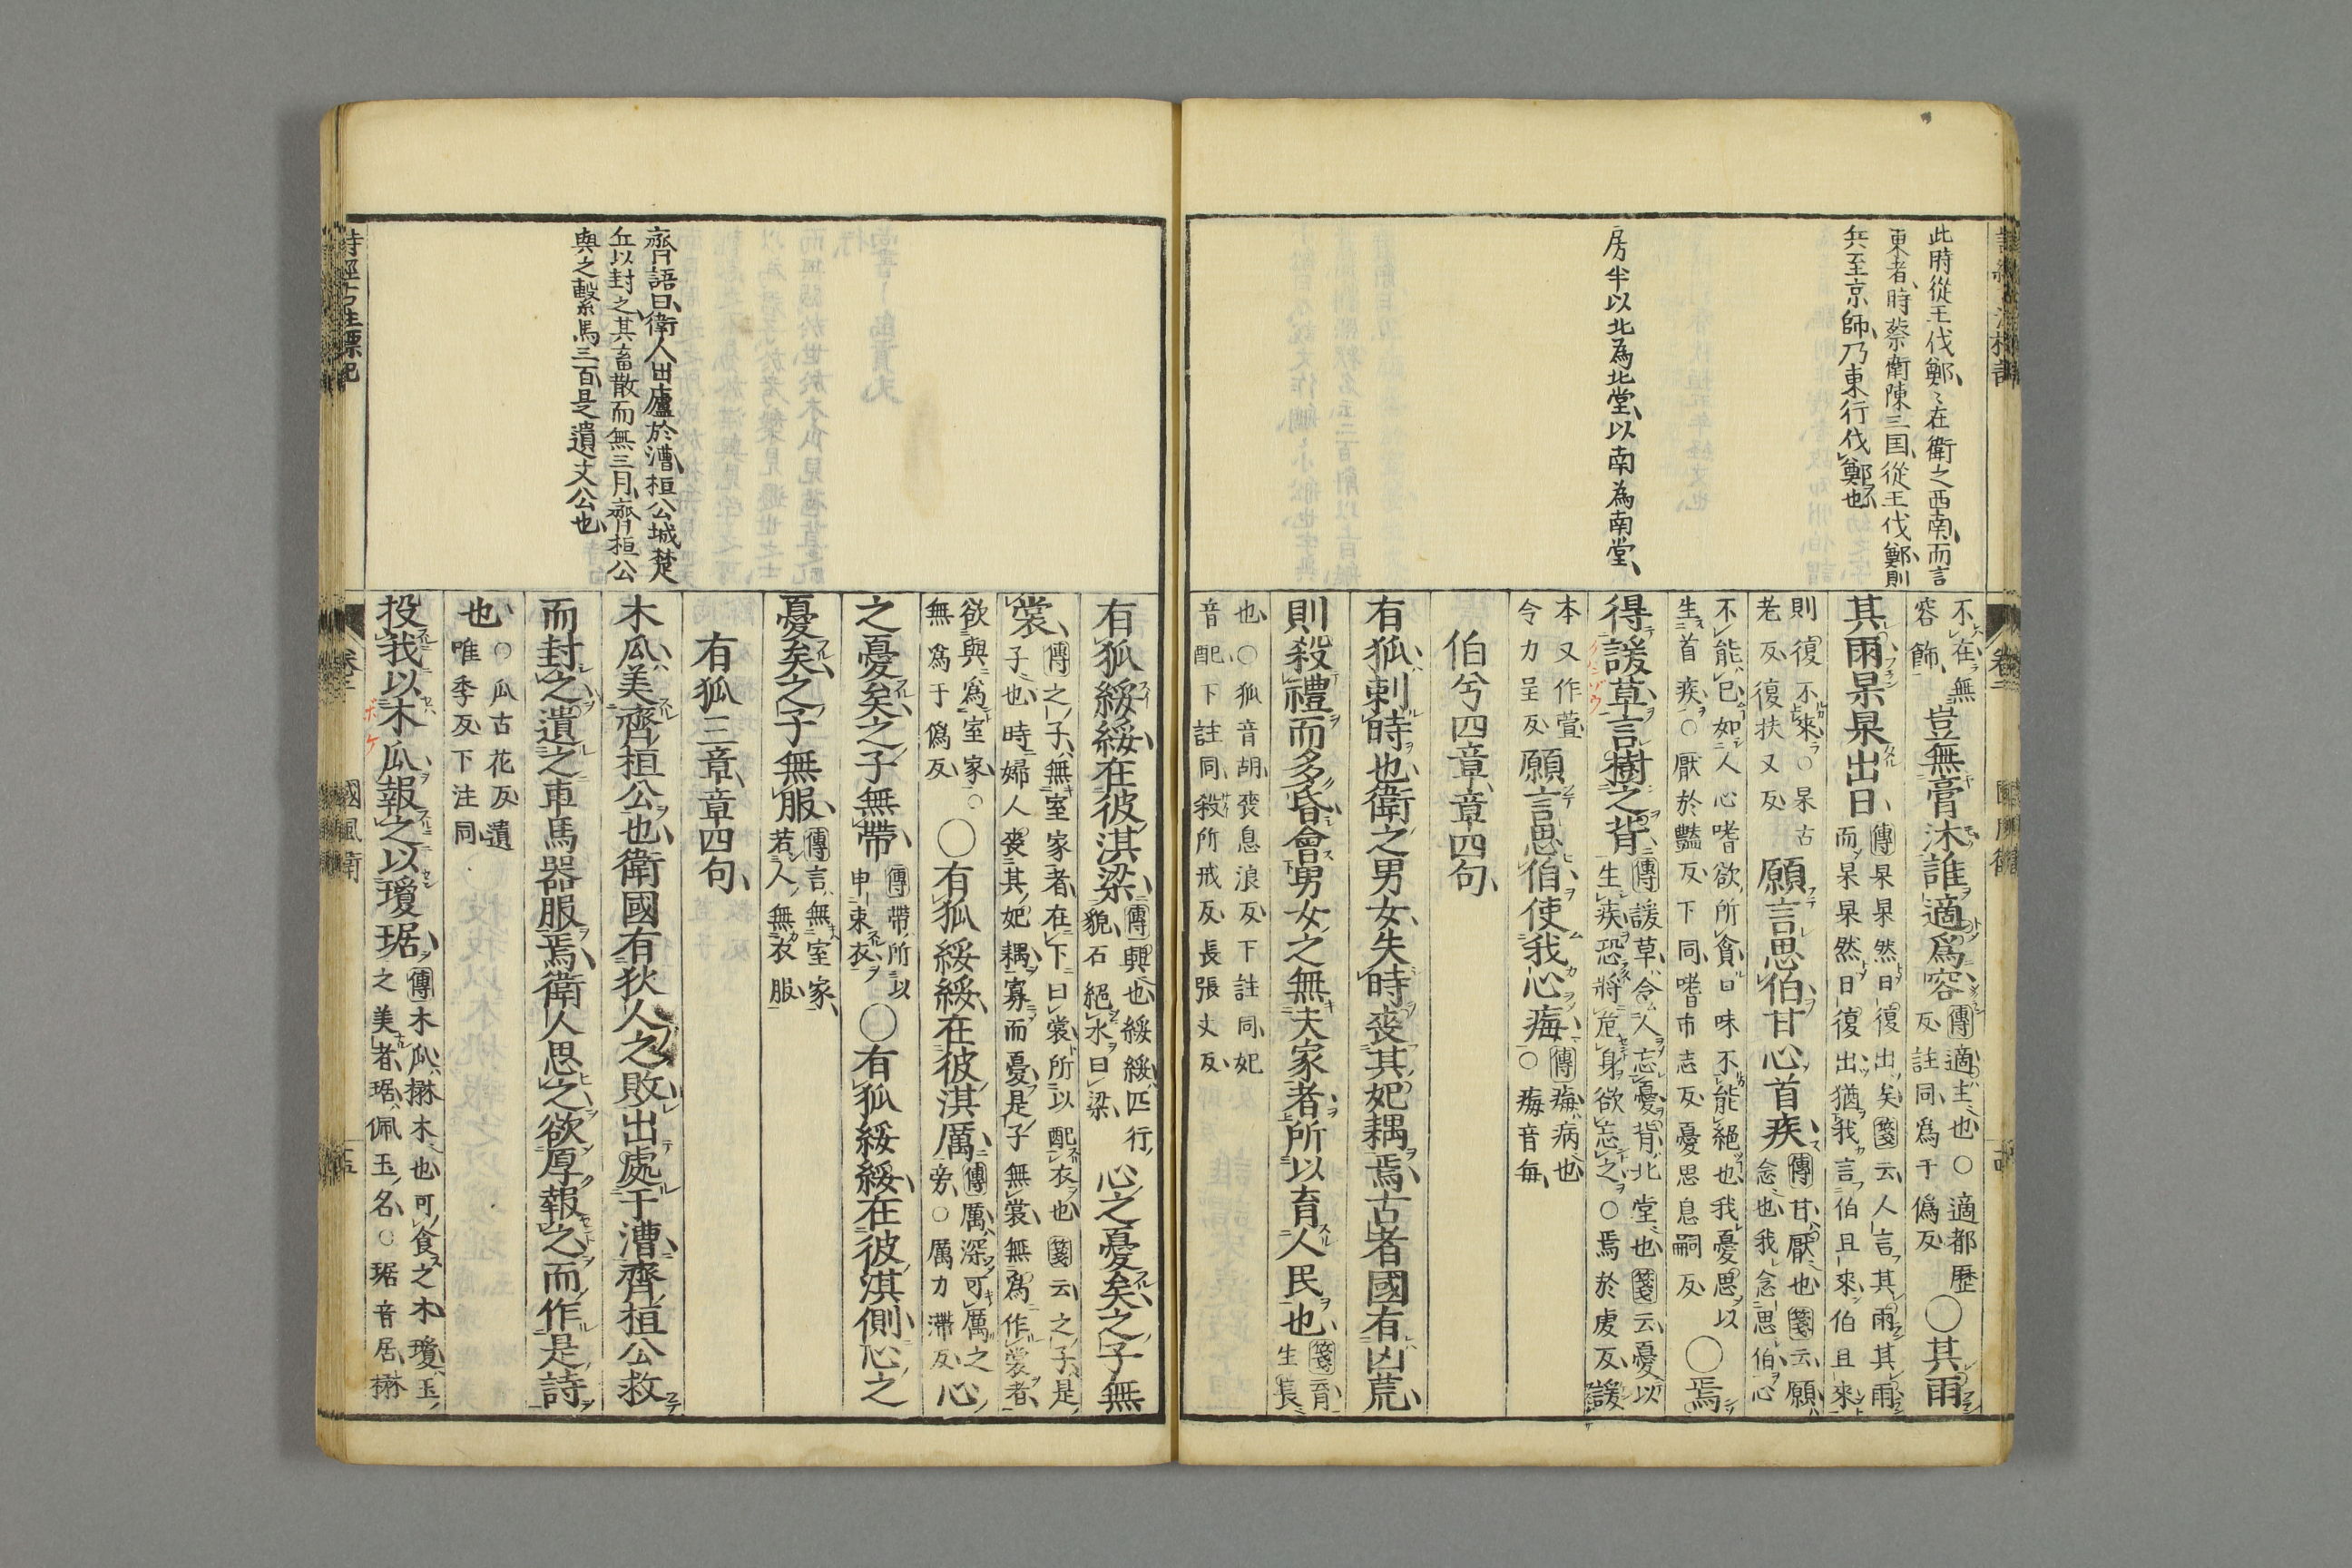 此時從王伐鄭〻在衛之西南而言
東者時蔡衛陳三国從王伐鄭則
兵至京師乃東行伐鄭也
房半以北為北堂以南為南堂
不在無
容飾
豈無膏沐誰適爲容
傳適主也○適都歷
反註同爲于僞反
○其雨
其雨杲杲出日
傳杲杲然日復出矣箋云人言其雨其雨
而杲杲然日復出猶我言伯且來伯且來
則復不來○杲古
老反復扶又反
願言思伯甘心首疾
傳甘厭也箋云願
念也我念思伯心
不能已如人心嗜欲所貪口味不能絕也我憂思以
生首疾○厭於豔反下同嗜市志反憂思息嗣反
○焉
得諼草言樹之背
傳諼草令人忘憂背北堂也箋云憂以
生疾恐將危身欲忘之○焉於虔反諼
本又作萱
令力呈反
願言思伯使我心痗
傳痗病也
○痗音每
伯兮四章章四句
有狐刺時也衛之男女失時喪其妃耦焉古者國有凶荒
則殺禮而多昏會男女之無夫家者所以育人民也
箋育
生長
也○狐音胡喪息浪反下註同妃
音配下註同殺所戒反長張丈反
有狐綏綏在彼淇梁
傳興也綏綏匹行
貌石絕水曰梁
心之憂矣之子無
裳
傳之子無室家者在下曰裳所以配衣也箋云之子是
子也時婦人喪其妃耦寡而憂是子無裳無爲作裳者
欲與爲室家○
無爲于僞反
○有狐綏綏在彼淇厲
傳厲深可厲之
旁○厲力滯反
心
之憂矣之子無帶
傳帶所以
申束衣
○有狐綏綏在彼淇側心之
憂矣之子無服
傳言無室家
若人無衣服
有狐三章章四句
木瓜美齊桓公也衛國有狄人之敗出處于漕齊桓公救
而封之遺之車馬器服焉衛人思之欲厚報之而作是詩
也
○瓜古花反遺
唯季反下注同
投我以木瓜報之以瓊琚
傳木瓜楙木也可食之木瓊玉
之美者琚佩玉名○琚音居楙
ボケ
齊語曰衛人出廬於漕桓公城楚
丘以封之其畜散而無三月齊桓公
與之繫馬三百是遺文公也
詩經古註標記
卷三
國風衛
十五